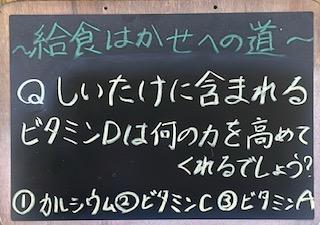 ～給食はかせへの道～
Q しいたけに含まれる
ビタミンDは何の力を高めて
くれるでしょう?
①カルシウム②ビタミンC③ビタミンA